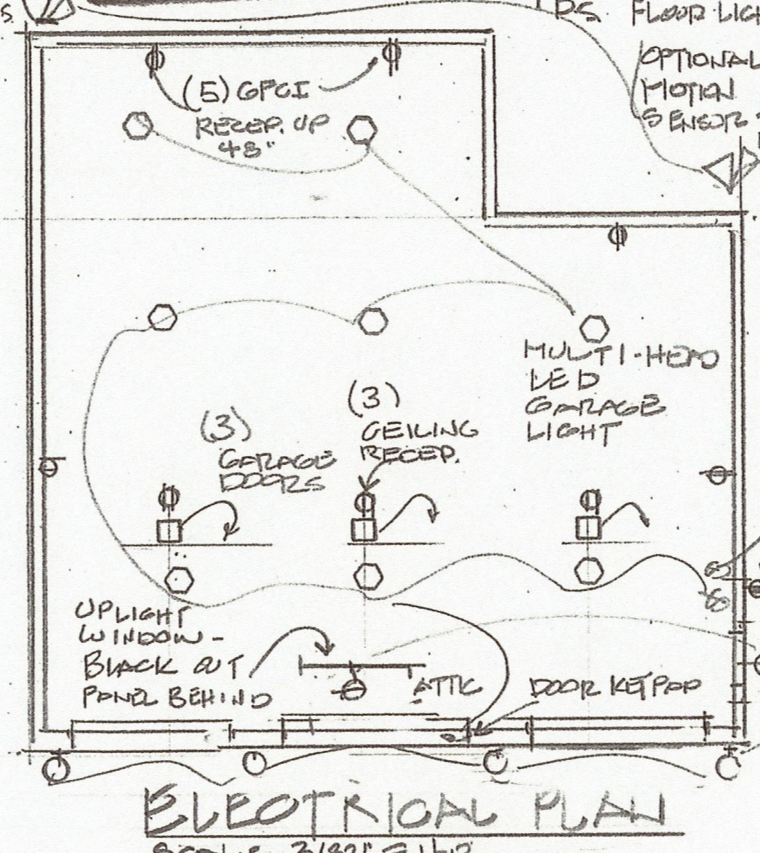 FLOOR LIGH
OPTIONAL
MOTION
SENSOR
(5) GFCI
RECEP. UP
48"
MULTI-HEAD
LED
GARAGE
LIGHT
(3)
CEILING
RECEP.
(3)
GARAGE
DOORS
UPLIGHT
WINDOW-
BLACK OUT
PANEL BEHIND
ATTIC
DOOR KEYPAD
ELECTRICAL PLAN